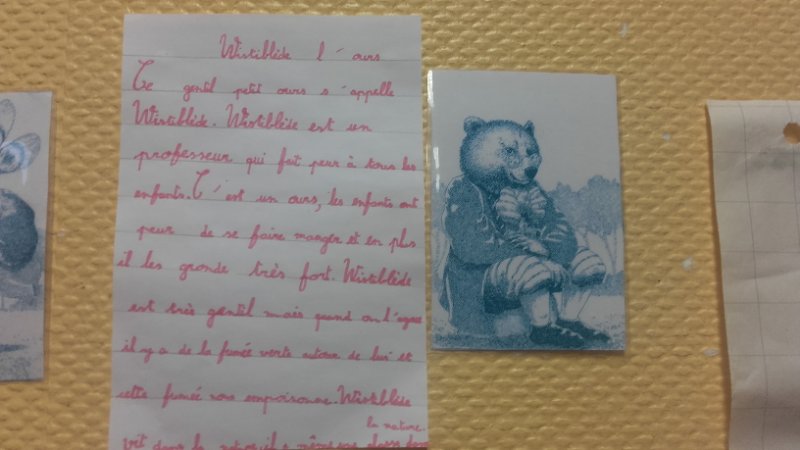 Wistiblède l'ours
Ce gentil petit ours s'appelle
Wistiblède. Wistiblède est un
professeur qui fait peur à tous les
enfants. C'est un ours, les enfants ont
peur de se faire manger et en plus
il les gronde très fort. Wistiblède
est très gentil mais quand on l'agace
il y a de la fumée verte autour de lui et
cette fumée vous empoisonne. Wistiblède
la nature.
vit dans la nature, il a même sa classe dans